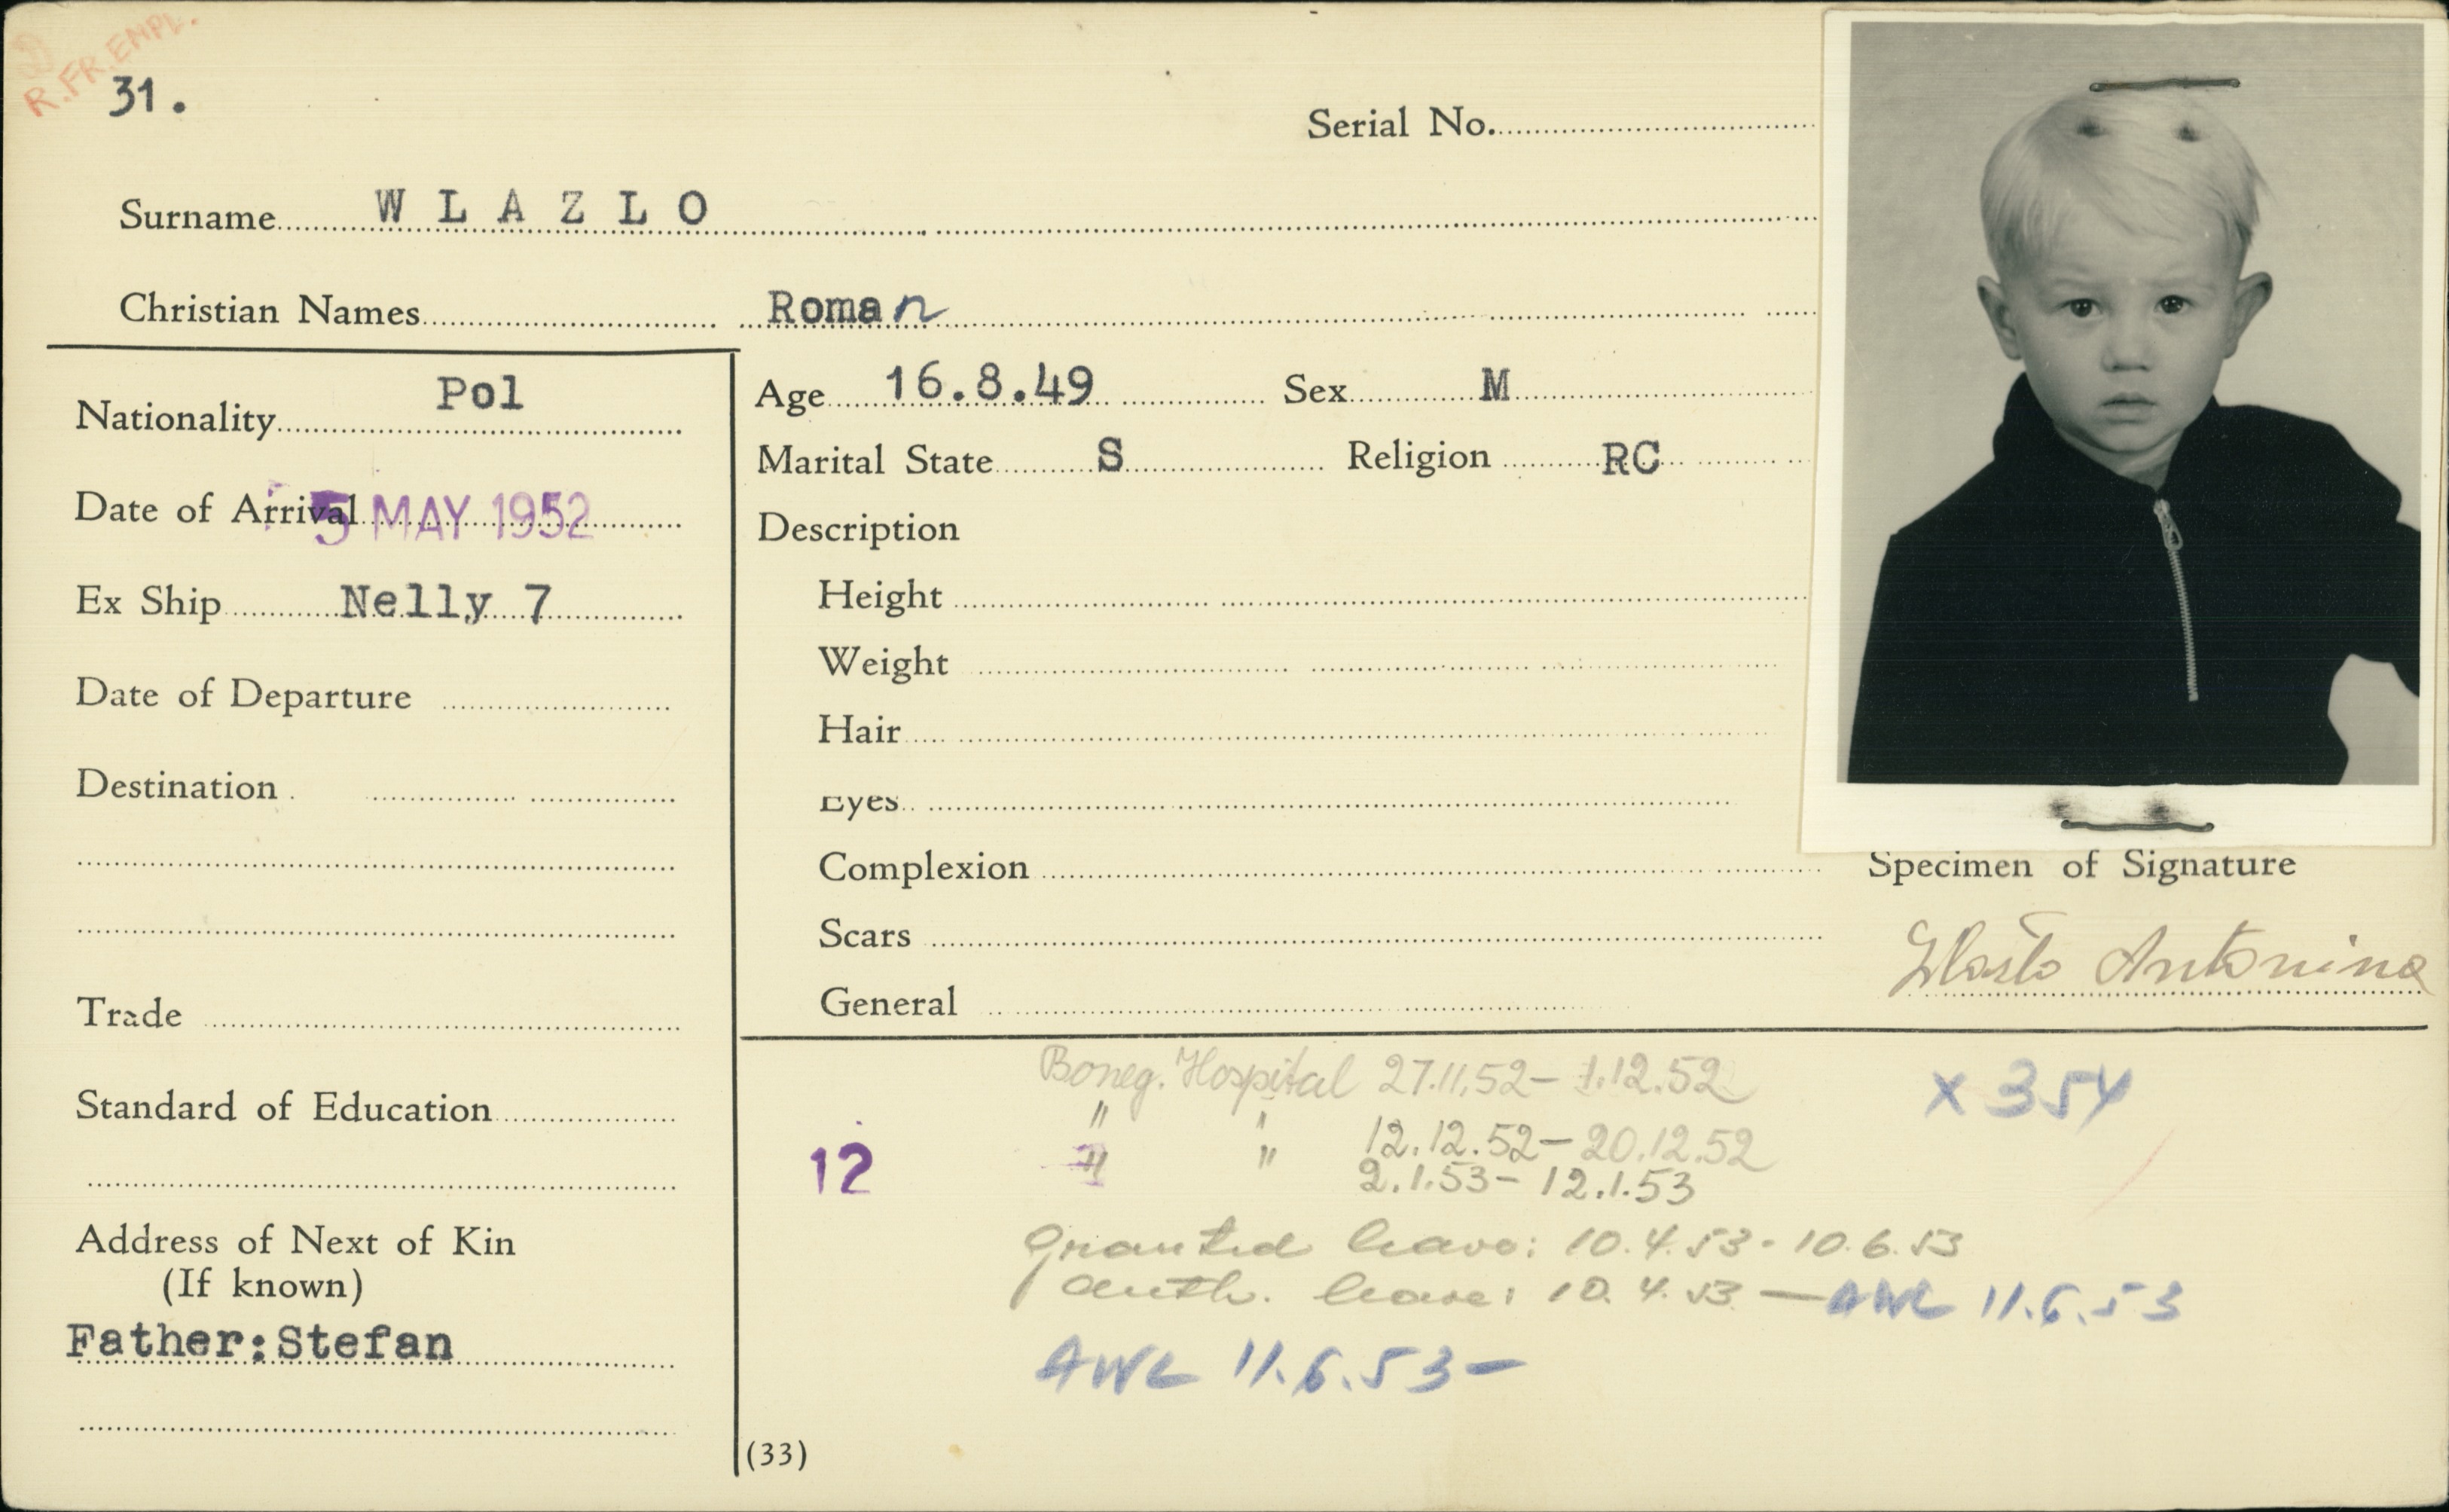 R.FR.EMPL.
31.
Serial No.
Surname W L A Z L O
Christian Names Roman
Nationality Pol
Age 16.8.49 Sex M
Marital State S Religion RC
Date of Arrival 5 MAY 1952
Description
Ex Ship Nelly 7
Height
Weight
Date of Departure
Hair
Destination
Eyes
Complexion
Specimen of Signature
Scars
Antonina
General
Trade
Boneg. Hospital 27.11.52 – 1.12.52
X 354
Standard of Education
" " 12.12.52 – 20.12.52
12
" " 2.1.53 – 12.1.53
Address of Next of Kin
(If known)
granted leave: 10.4.53 - 10.6.53
auth. leave: 10.4.53 — AWL 11.6.53
Father:Stefan
AWL 11.6.53 –
(33)